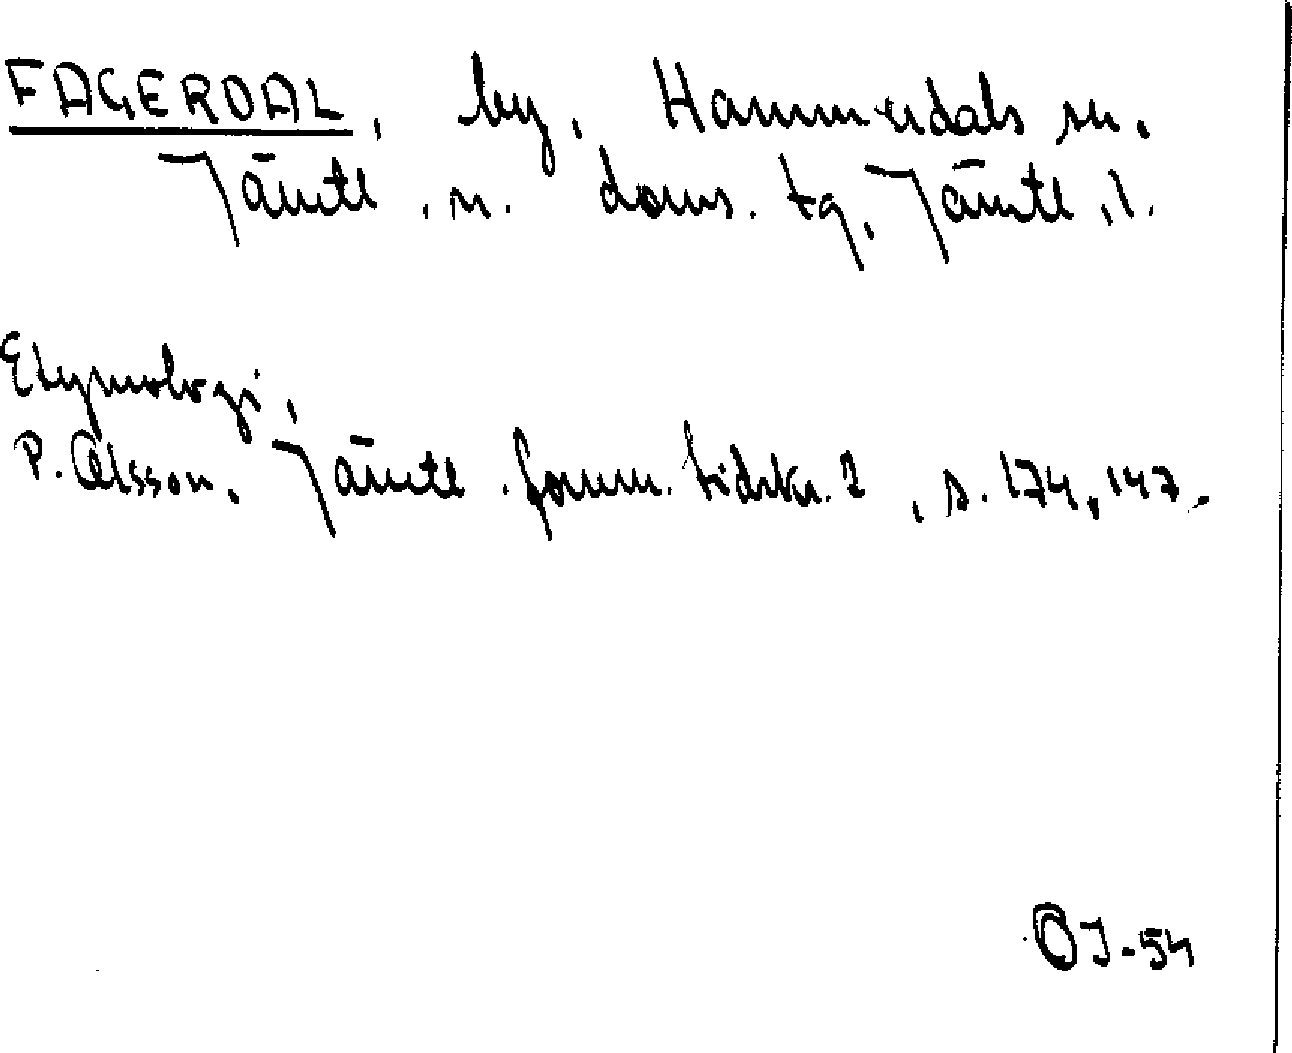 FAGERDAL, by, Hammerdals sn.
Jämtl. n. doms. tg, Jämtl. l.
Etymologi,
P. Olsson. Jämtl. fornm. tidskr. 2, s. 174, 147.
OJ-54